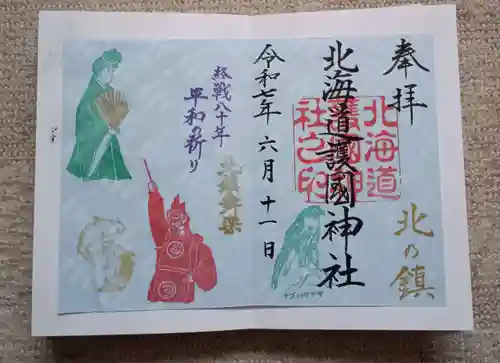 奉拝
北の鎮
北海道護國神社
北海道
護國神
社之印
令和七年 六月 十一日
終戦八十年
平和の祈り